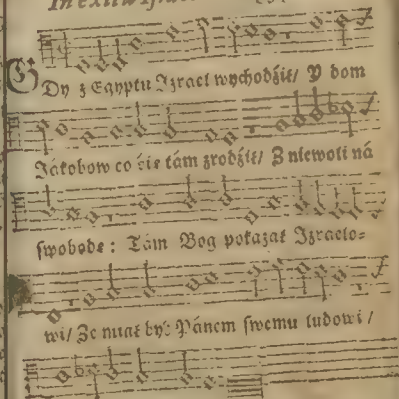 In exitu Israel
Gdy z Egyptu Izrael wychodźił/ Y dom
Jákobow co się tám zrodźił/ Z niewoli ná
swobodę: Tám Bog pokazał Izraelo-
wi/ Że miał być Pánem swemu ludowi/